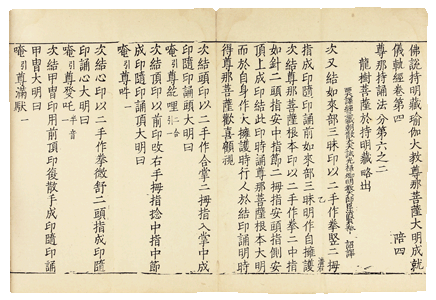 佛說持明藏瑜伽大教尊那菩薩大明成就
儀軌經卷第四　陪四
尊那持誦法分第六之二
龍樹菩薩於持明藏略出
次又結如來部三昧印以二手作拳竪二拇
指成印隨印誦前如來部三昧明作自擁護
次結尊那菩薩根本印以二手作拳二中指
如針二頭指安中指節二拇指安頭指側安
頂上成印結此印時誦尊那菩薩根本大明
而於自身作大擁護時行人於結印誦明時
得尊那菩薩歡喜顧視
次結頭印以二手作合掌二拇指入掌中成
印隨印誦頭大明曰
唵引尊紇哩二合引一
次結頂印以前印改右手拇指捻中指中節
成印隨印誦頂大明曰
唵引尊吽一
次結心印以二手作拳微舒二頭指成印隨
印誦心大明曰
唵引尊發吒半音一
次結甲冑印用前頂印復散手成印隨印誦
甲冑大明曰
唵引尊滿馱一